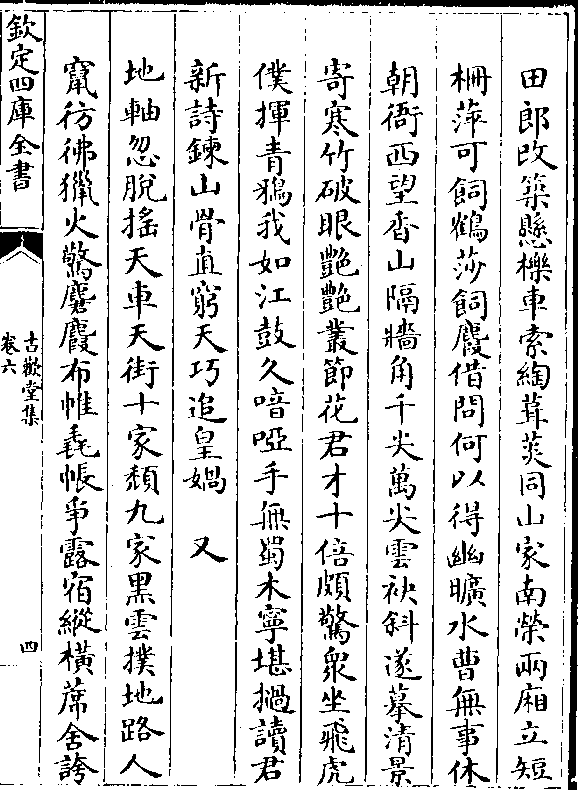 田郎改築懸櫟車索綯葺茭同山家南榮兩廂立短
柵萍可飼鶴莎飼麌借問何以得幽曠水曹無事休
朝衙西望香山隔牆角千尖萬尖雲袂斜遂摹清景
寄寒竹破眼艷艷叢節花君才十倍頗驚衆坐飛虎
僕揮青鴉我如江鼓久喑啞手無蜀木寧堪撾讀君
新詩鍊山骨直窮天巧追皇媧　又
地軸忽脫搖天車天街十家頽九家黒雲撲地路人
竄彷彿獵火驚麏麚布帷毳帳爭露宿縱橫蓆舍誇
欽定四庫全書
古歡堂集
卷六
四